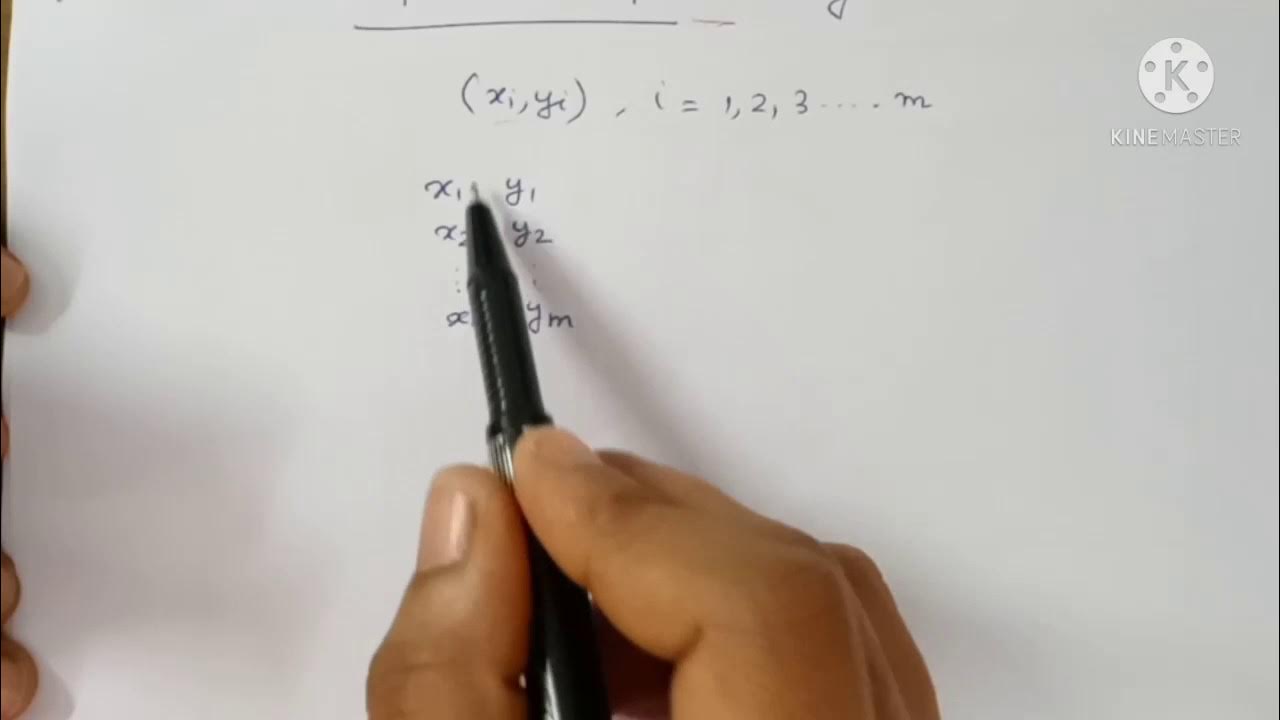 (xi, yi) , i = 1, 2, 3 ..... m
KINEMASTER
x1 y1
x2 y2
: :
x ym